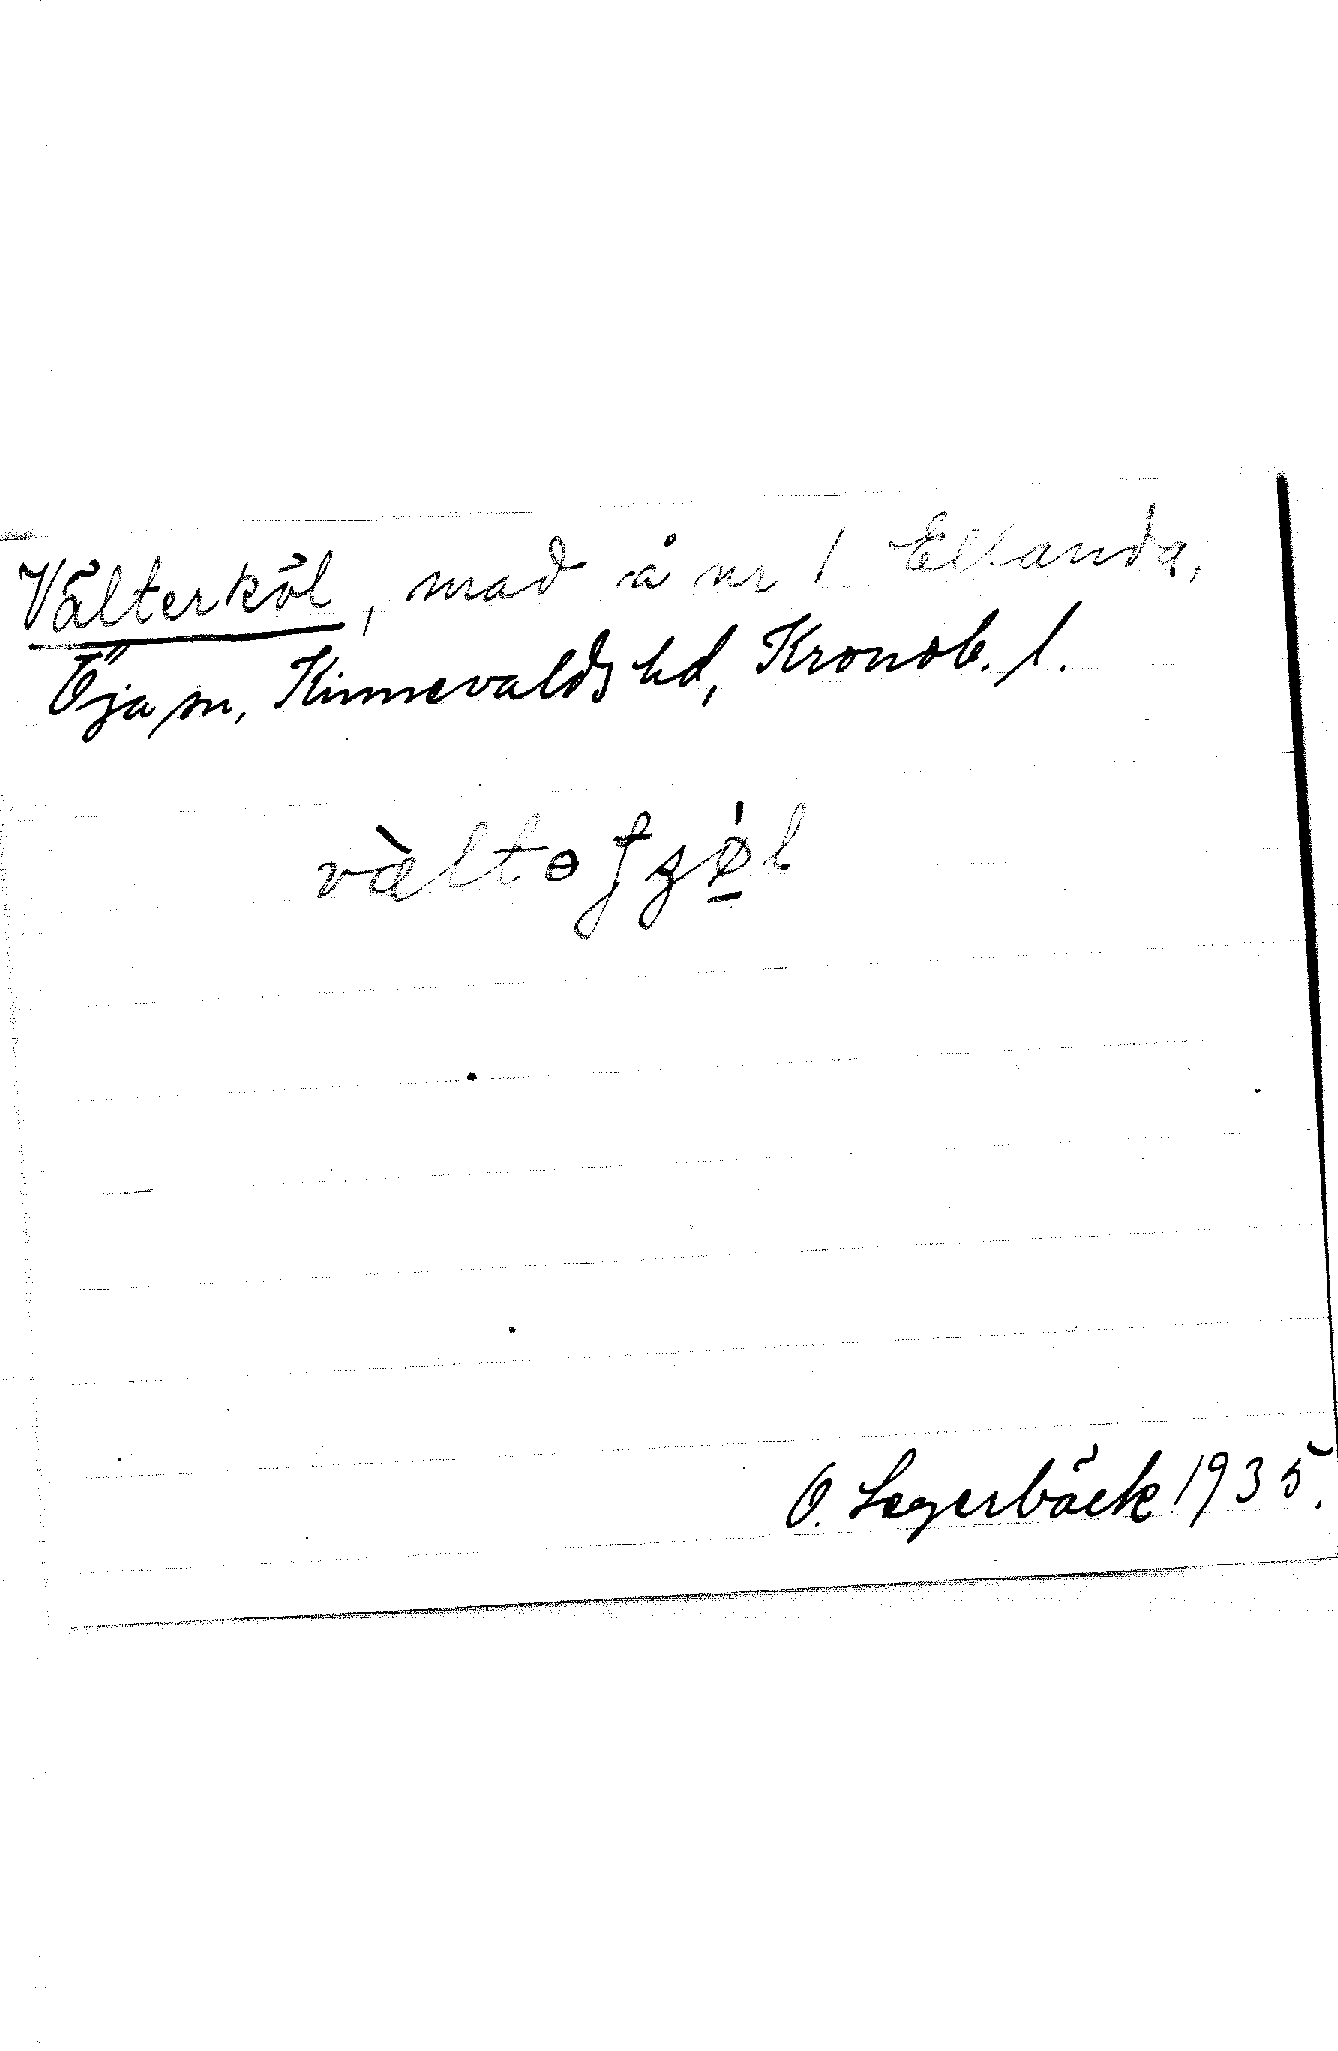 Välterköl, mad å nr 1 Ellanda,
Öja sn, Kinnevalds hd, Kronob. l.
O. Lagerbäck 1935.